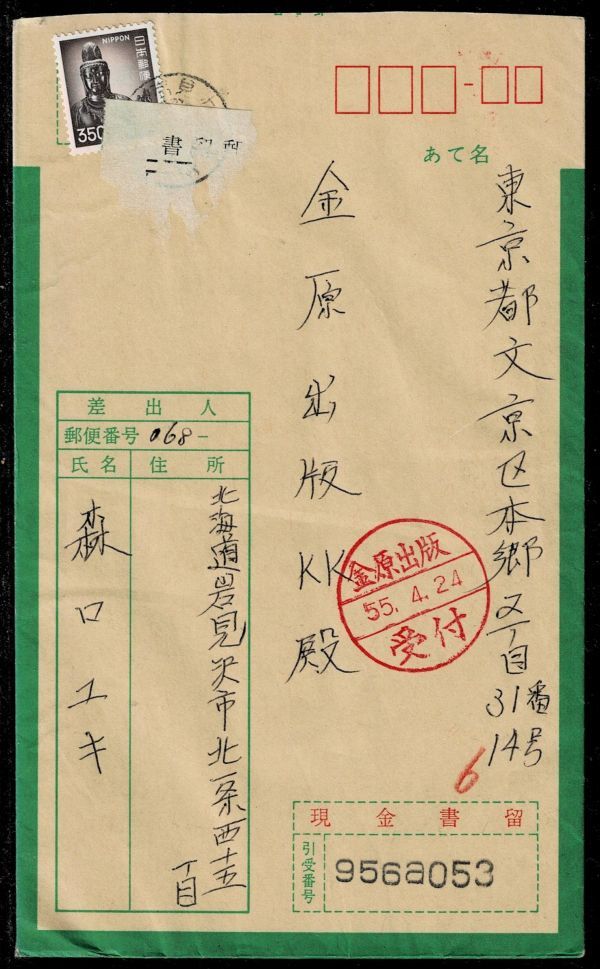 NIPPON
日本郵便
350
書留郵
あて名
東京都文京区本郷2丁目
31番
14号
金原出版KK殿
金原出版
55.4.24
受付
6
差出人
郵便番号 068-
氏名 住所
北海道岩見沢市北一条西十五
丁目
森口ユキ
現金書留
引受番号
956a053